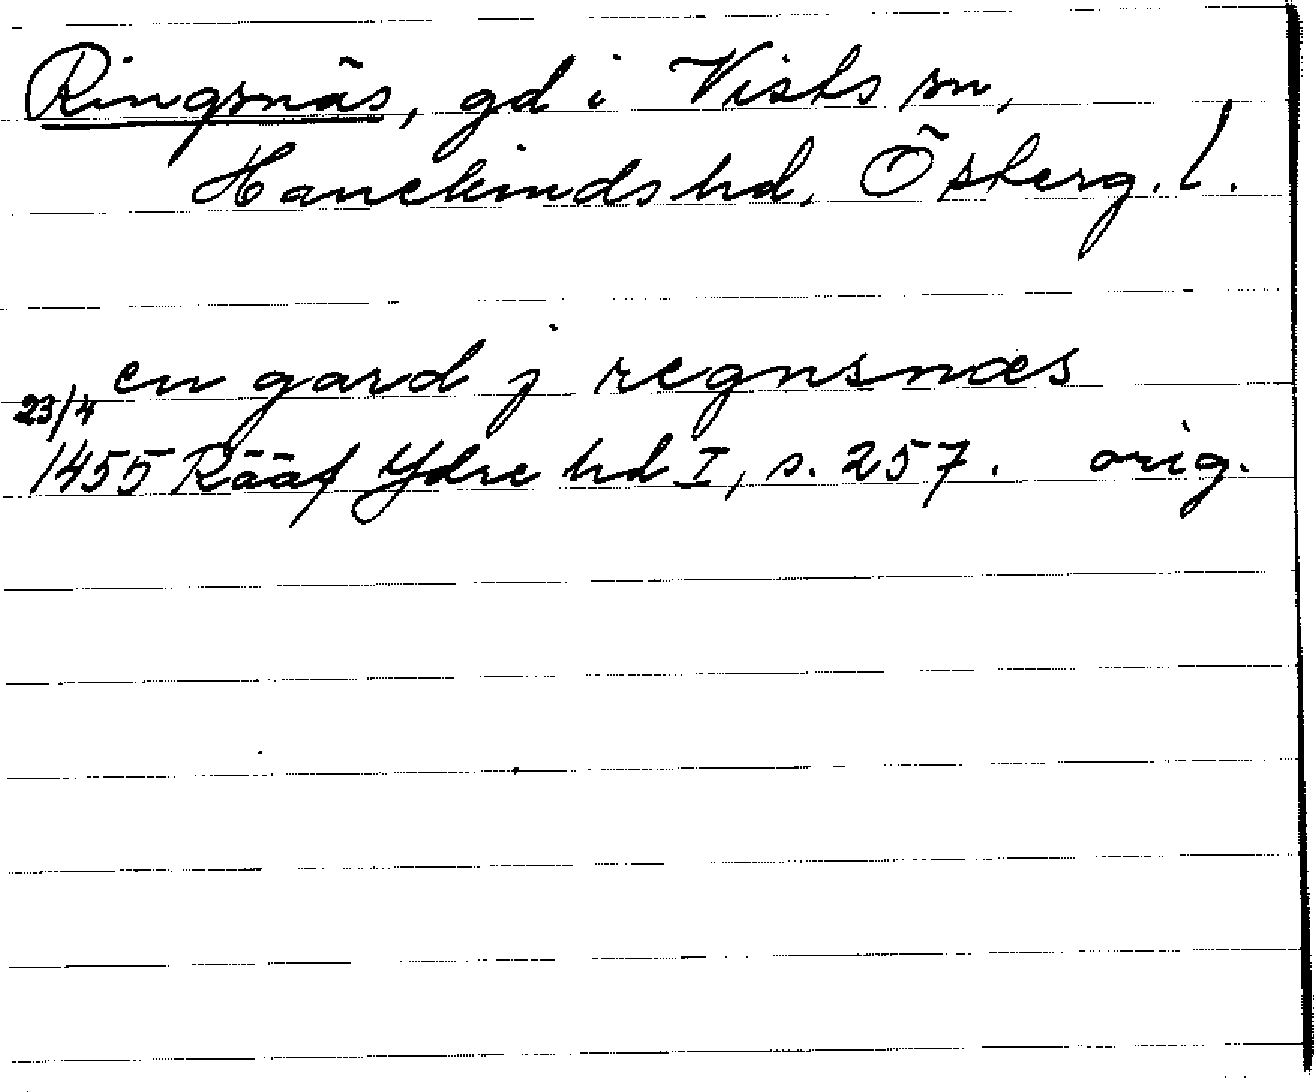 Ringsnäs, gd i Vists sn,
Hanekinds hd, Österg. l.
en gard j regnsnæs
23/4
1455 Rääf Ydre hd I, s. 257. orig.